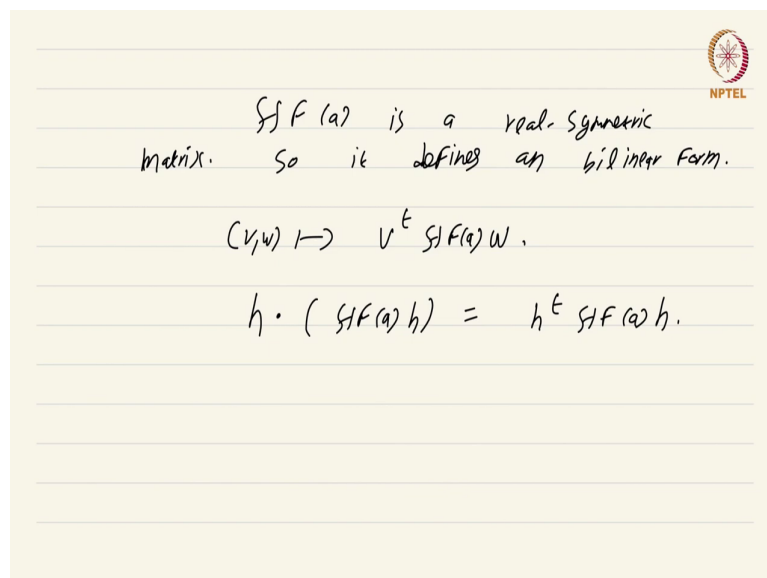 NPTEL
ℋF(a) is a real-symmetric
matrix. So it defines an bilinear form.
(v,w) ↦ vᵗ ℋF(a) w.
h · (ℋF(a) h) = hᵗ ℋF(a) h.